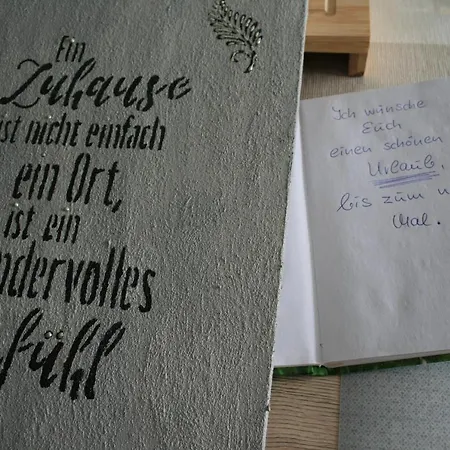 Ein
Zuhause
ist nicht einfach
ein Ort,
ist ein
ndervolles
fühl
Ich wünsche
Euch
einen schönen
Urlaub,
bis zum n
Mal.